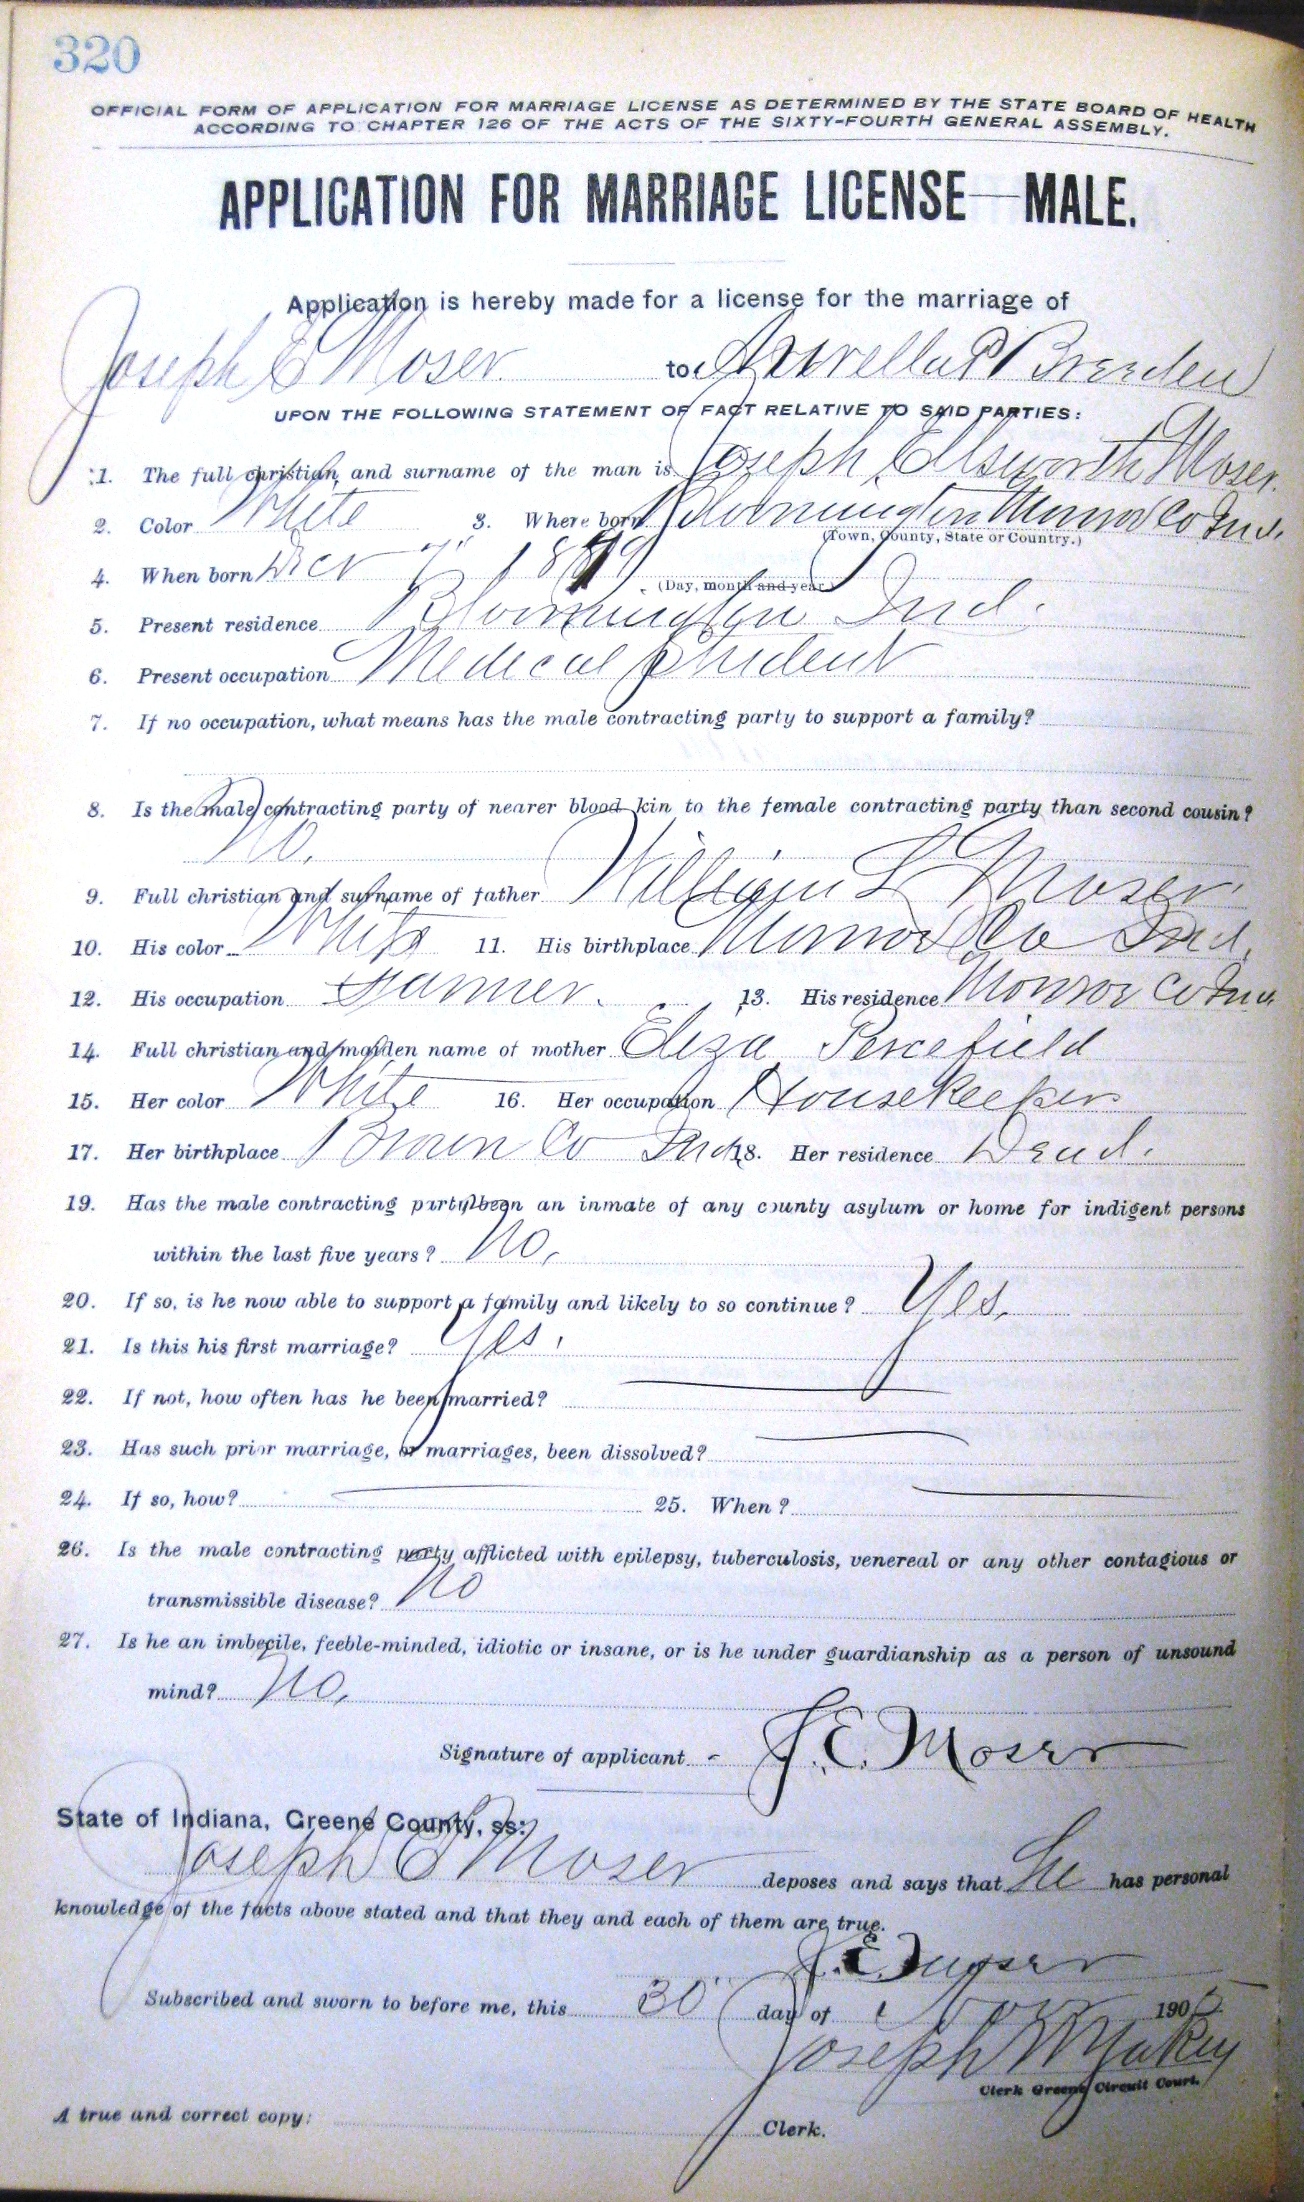 320
OFFICIAL FORM OF APPLICATION FOR MARRIAGE LICENSE AS DETERMINED BY THE STATE BOARD OF HEALTH
ACCORDING TO CHAPTER 126 OF THE ACTS OF THE SIXTY-FOURTH GENERAL ASSEMBLY.
APPLICATION FOR MARRIAGE LICENSE—MALE.
Application is hereby made for a license for the marriage of
Joseph E Moser to P Breeden
UPON THE FOLLOWING STATEMENT OF FACT RELATIVE TO SAID PARTIES:
1. The full christian and surname of the man is Joseph Ellsworth Moser.
2. Color White 3. Where born Bloomington Monroe Co Ind.
(Town, County, State or Country.)
4. When born Dec 7" 1879
(Day, month and year.)
5. Present residence Bloomington Ind.
6. Present occupation Medical Student
7. If no occupation, what means has the male contracting party to support a family?
8. Is the male contracting party of nearer blood kin to the female contracting party than second cousin?
No.
9. Full christian and surname of father William L Moser
10. His color White 11. His birthplace Monroe Co Ind.
12. His occupation Farmer. 13. His residence Monroe Co Ind.
14. Full christian and maiden name of mother Eliza Percefield
15. Her color White 16. Her occupation Housekeeper
17. Her birthplace Brown Co Ind. 18. Her residence Dead.
19. Has the male contracting party been an inmate of any county asylum or home for indigent persons
within the last five years? No.
20. If so, is he now able to support a family and likely to so continue? Yes.
21. Is this his first marriage? Yes.
22. If not, how often has he been married?
23. Has such prior marriage, or marriages, been dissolved?
24. If so, how? 25. When?
26. Is the male contracting party afflicted with epilepsy, tuberculosis, venereal or any other contagious or
transmissible disease? No
27. Is he an imbecile, feeble-minded, idiotic or insane, or is he under guardianship as a person of unsound
mind? No.
Signature of applicant J. E. Moser
State of Indiana, Greene County, ss:
Joseph E Moser deposes and says that he has personal
knowledge of the facts above stated and that they and each of them are true.
J. E. Moser
Subscribed and sworn to before me, this 30" day of Nov 1905
Joseph W Yakey
Clerk Greene Circuit Court.
A true and correct copy: Clerk.